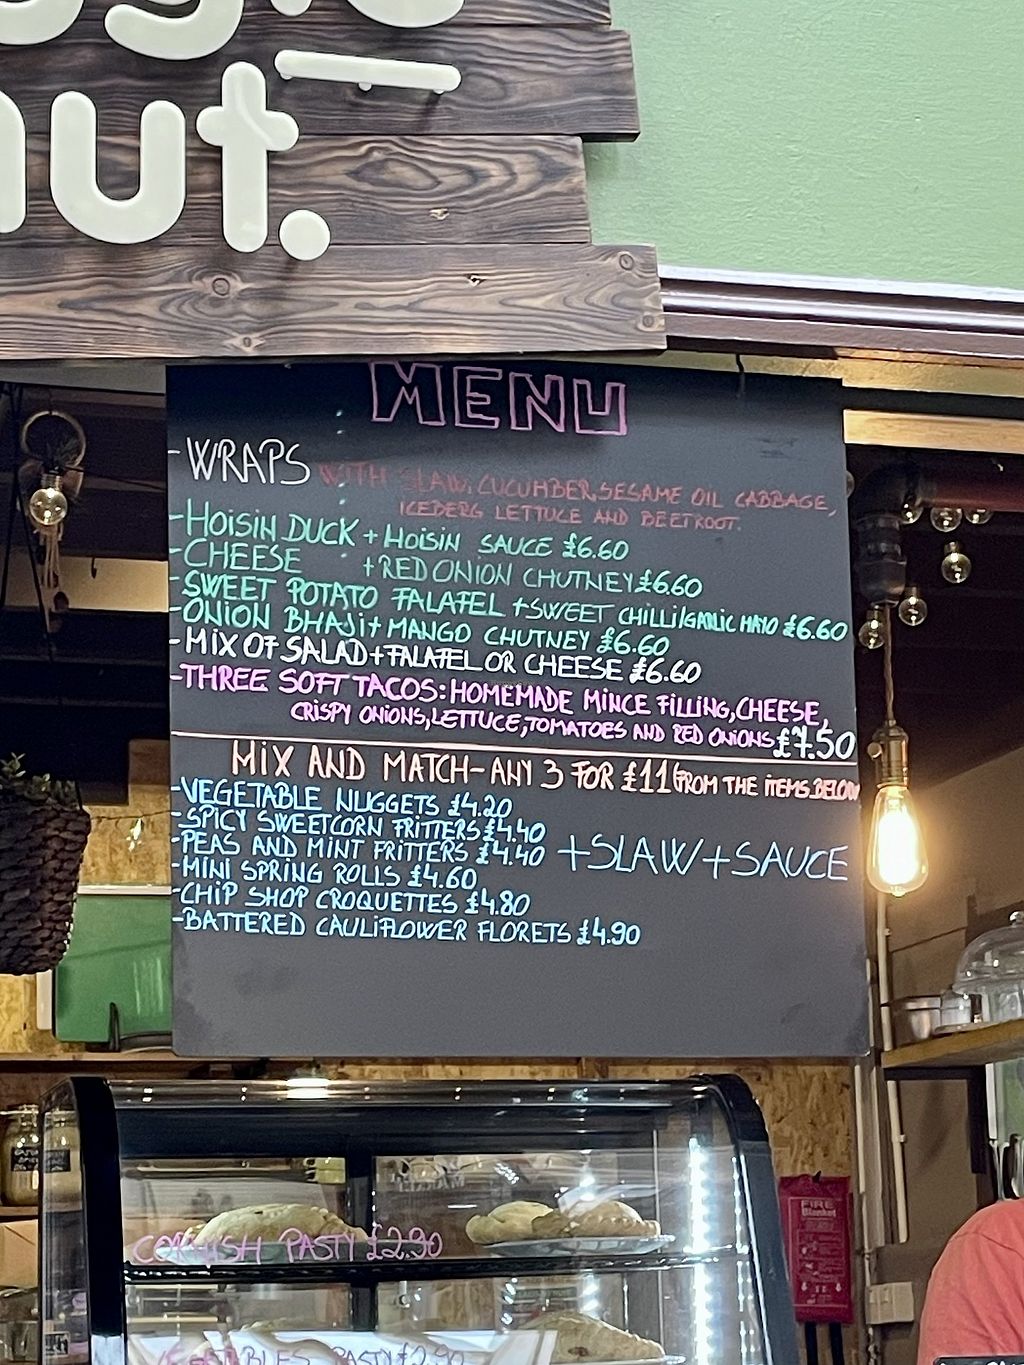 nut.
MENU
-WRAPS WITH SLAW, CUCUMBER, SESAME OIL CABBAGE,
ICEBERG LETTUCE AND BEETROOT.
-HOISIN DUCK + HOISIN SAUCE £6.60
-CHEESE +RED ONION CHUTNEY £6.60
-SWEET POTATO FALAFEL +SWEET CHILLI/GARLIC MAYO £6.60
-ONION BHAJI+ MANGO CHUTNEY £6.60
-MIX OF SALAD+FALAFEL OR CHEESE £6.60
-THREE SOFT TACOS: HOMEMADE MINCE FILLING, CHEESE,
CRISPY ONIONS, LETTUCE, TOMATOES AND RED ONIONS £7.50
MIX AND MATCH-ANY 3 FOR £11 (FROM THE ITEMS BELOW
-VEGETABLE NUGGETS £4.20
-SPICY SWEETCORN FRITTERS £4.40
-PEAS AND MINT FRITTERS £4.40 +SLAW+SAUCE
-MINI SPRING ROLLS £4.60
-CHIP SHOP CROQUETTES £4.80
-BATTERED CAULIFLOWER FLORETS £4.90
CORNISH PASTY £2.90
FIRE
Blanket
PASTY £2.90